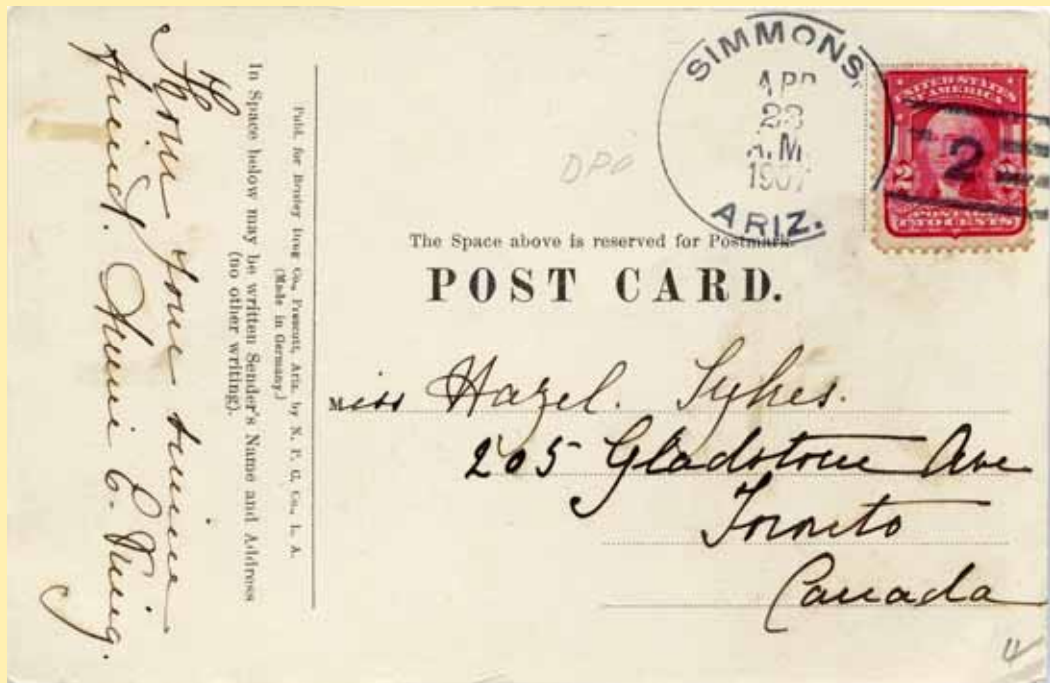 SIMMONS,
APR
23
A.M.
1907
ARIZ.
UNITED STATES
OF AMERICA
2 2
POSTAGE
TWO CENTS
2
DPO
The Space above is reserved for Postmark.
POST CARD.
Miss Hazel. Sykes.
205 Gladstone Ave
Toronto
Canada
Publ. for Brisley Drug Co., Prescott, Ariz. by N. P. C. Co., L. A.
(Made in Germany.)
In Space below may be written Sender's Name and Address
(no other writing).
From your
friend. C.